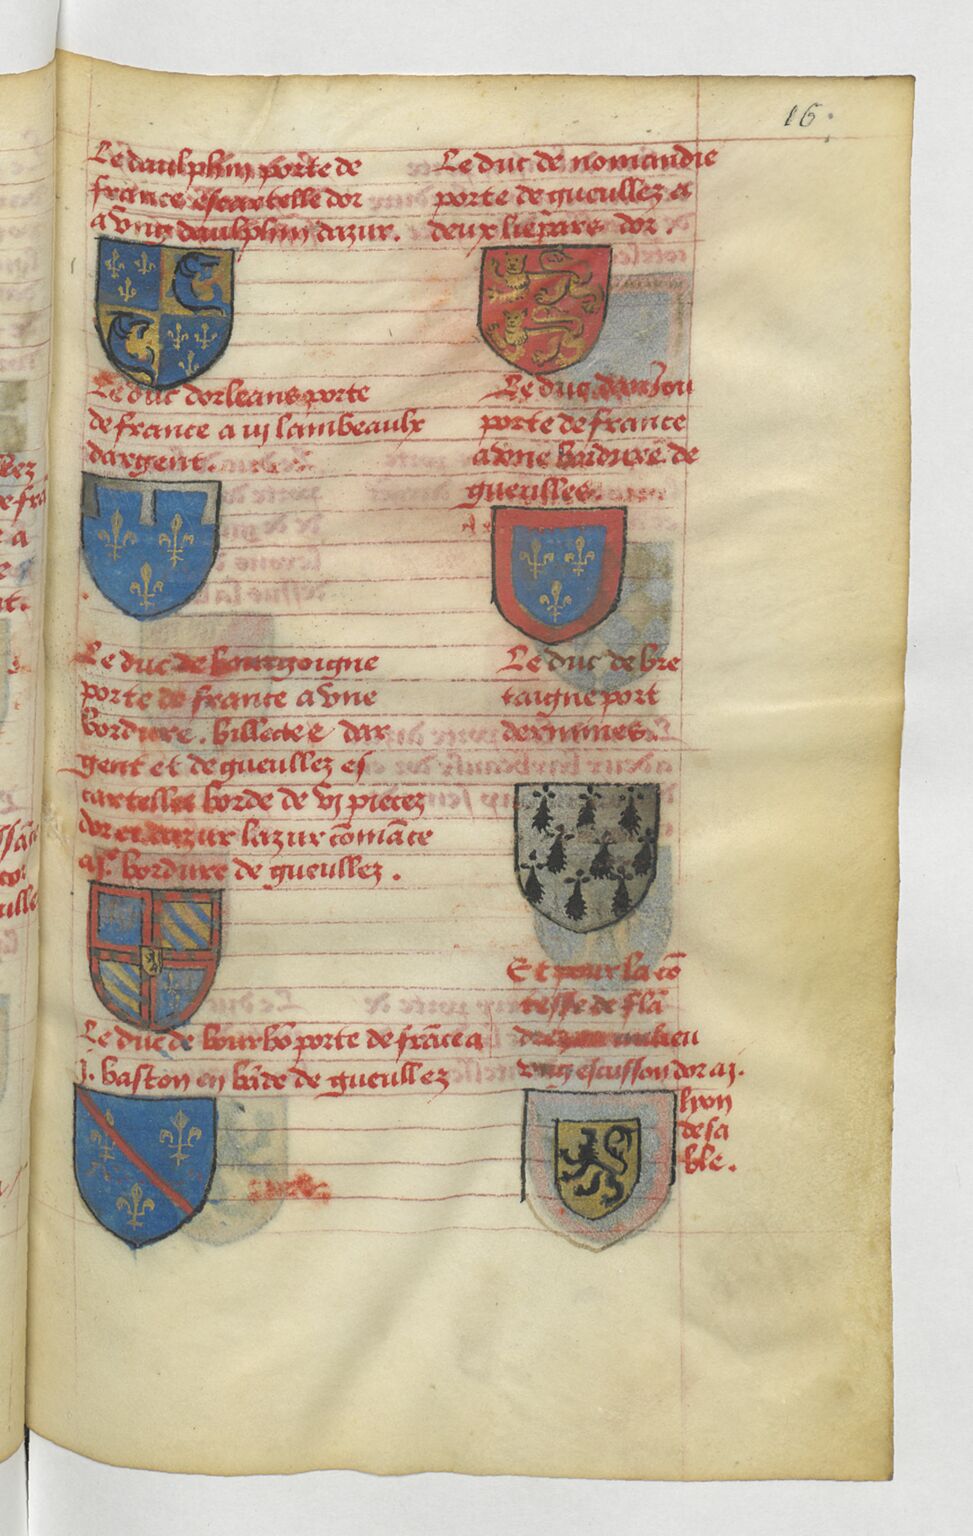 16.
Le daulphin porte de
france escartelle dor
a vng daulphin dazur.
Le duc dorleans porte
de france a iij lambeaulx
dargent.
Le duc de bourgoigne
porte de france a vne
bordure . billectee dar
gent et de gueullez es
cartelles borde de vj piecez
dor et dazur lazur comance
a j. bordure de gueullez .
Le duc de bourbō porte de frāce a
j. baston en bāde de gueullez
Le duc de normandie
porte de gueullez a
deux liepars dor .
Le duc danjou
porte de france
a vne bordure de
gueulles.
Le duc de bre
taigne port
dermines.
Et pour la cō
tesse de flā
milieu
vng escusson dor a j.
lyon
de sa
ble.